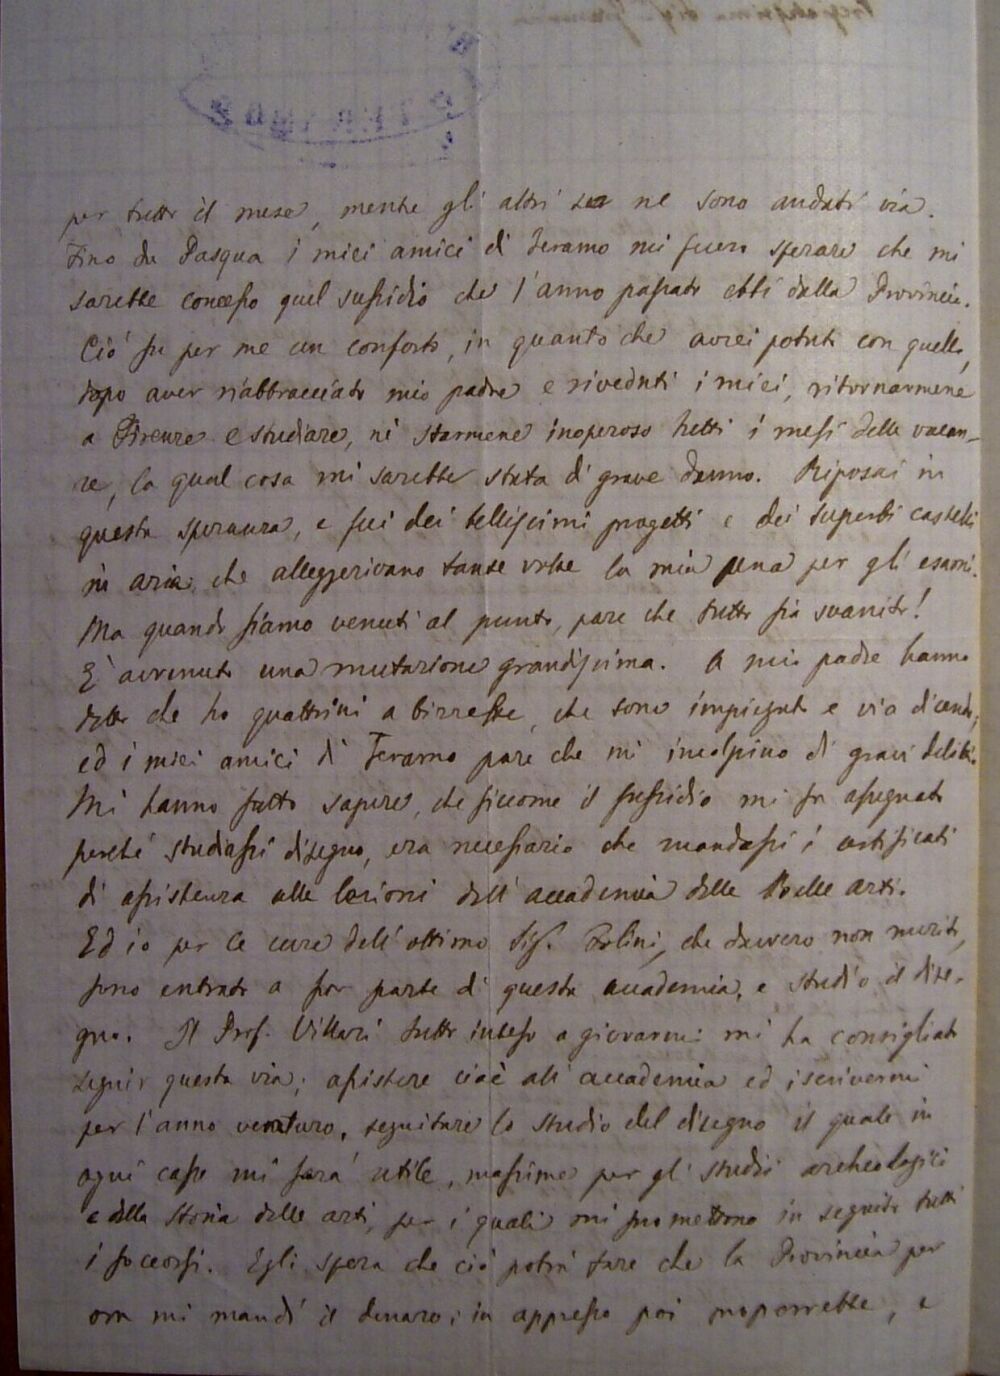 per tutto il mese, mentre gli altri se ne sono andati via.
Fino da Pasqua i miei amici di Teramo mi fecero sperare che mi
sarebbe concesso quel sussidio che l'anno passato ebbi dalla Provincia.
Ciò fu per me un conforto, in quanto che avrei potuto con quello,
dopo aver riabbracciato mio padre e riveduti i miei, ritornarmene
a Firenze e studiare, nè starmene inoperoso tutti i mesi delle vacan-
ze, la qual cosa mi sarebbe stata di grave danno. Riposai in
questa speranza, e feci dei bellissimi progetti e dei superbi castelli
in aria, che alleggerivano tante volte la mia pena per gli esami.
Ma quando siamo venuti al punto, pare che tutto sia svanito!
E' avvenuta una mutazione grandissima. A mio padre hanno
detto che ho quattrini a bizzeffe, che sono impiegato e via dicendo,
ed i miei amici di Teramo pare che mi incolpino di gravi delitti.
Mi hanno fatto sapere, che siccome il sussidio mi fu assegnato
perché studiassi disegno, era necessario che mandassi i certificati
di assistenza alle lezioni dell'accademia delle Belle arti.
Ed io per le cure dell'ottimo Sig. che davvero non merito,
sono entrato a far parte di questa accademia, e studio il dise-
gno. Il Prof. Villari tutto inteso a giovarmi mi ha consigliato
seguir questa via; assistere cioè all'accademia ed iscrivermi
per l'anno venturo, seguitare lo studio del disegno il quale in
ogni caso mi sarà utile, massime per gli studii archeologici
e della storia delle arti, per i quali mi promettono in seguito tutti
i soccorsi. Egli spera che ciò potrà fare che la Provincia per
ora mi mandi il denaro; in appresso poi proporrebbe, e